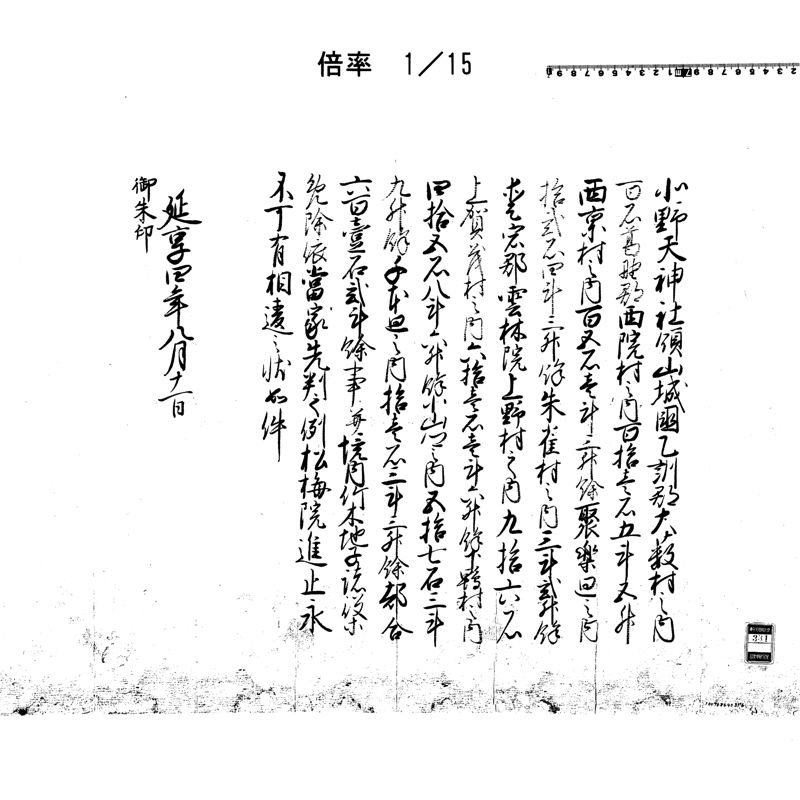 倍率 1/15
北野天神社領山城國乙訓郡大藪村之内
百石葛野郡西院村之内百拾壱石五斗五升
西京村之内百五石壱斗三升餘聚樂廻之内
拾弐石四斗三升餘朱雀村之内三斗弐升餘
愛宕郡雲林院上野村之内九拾六石
上賀茂村之内六拾壱石壱斗六升餘下鴨村之内
四拾五石八斗六升餘小山之内五拾七石三斗
九升餘千本廻之内拾壱石三斗三升餘都合
六百壹石弐斗餘事并境内竹木地子諸役
免除依當家先判之例松梅院進止永
不可有相違之状如件
延享四年八月十一日
御朱印
331